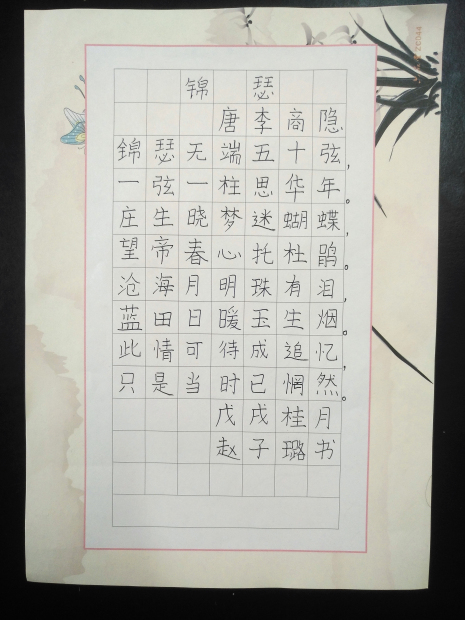 锦瑟
唐李商隐
锦瑟无端五十弦，
一弦一柱思华年。
庄生晓梦迷蝴蝶，
望帝春心托杜鹃。
沧海月明珠有泪，
蓝田日暖玉生烟。
此情可待成追忆，
只是当时已惘然。
戊戌桂月
赵子璐书